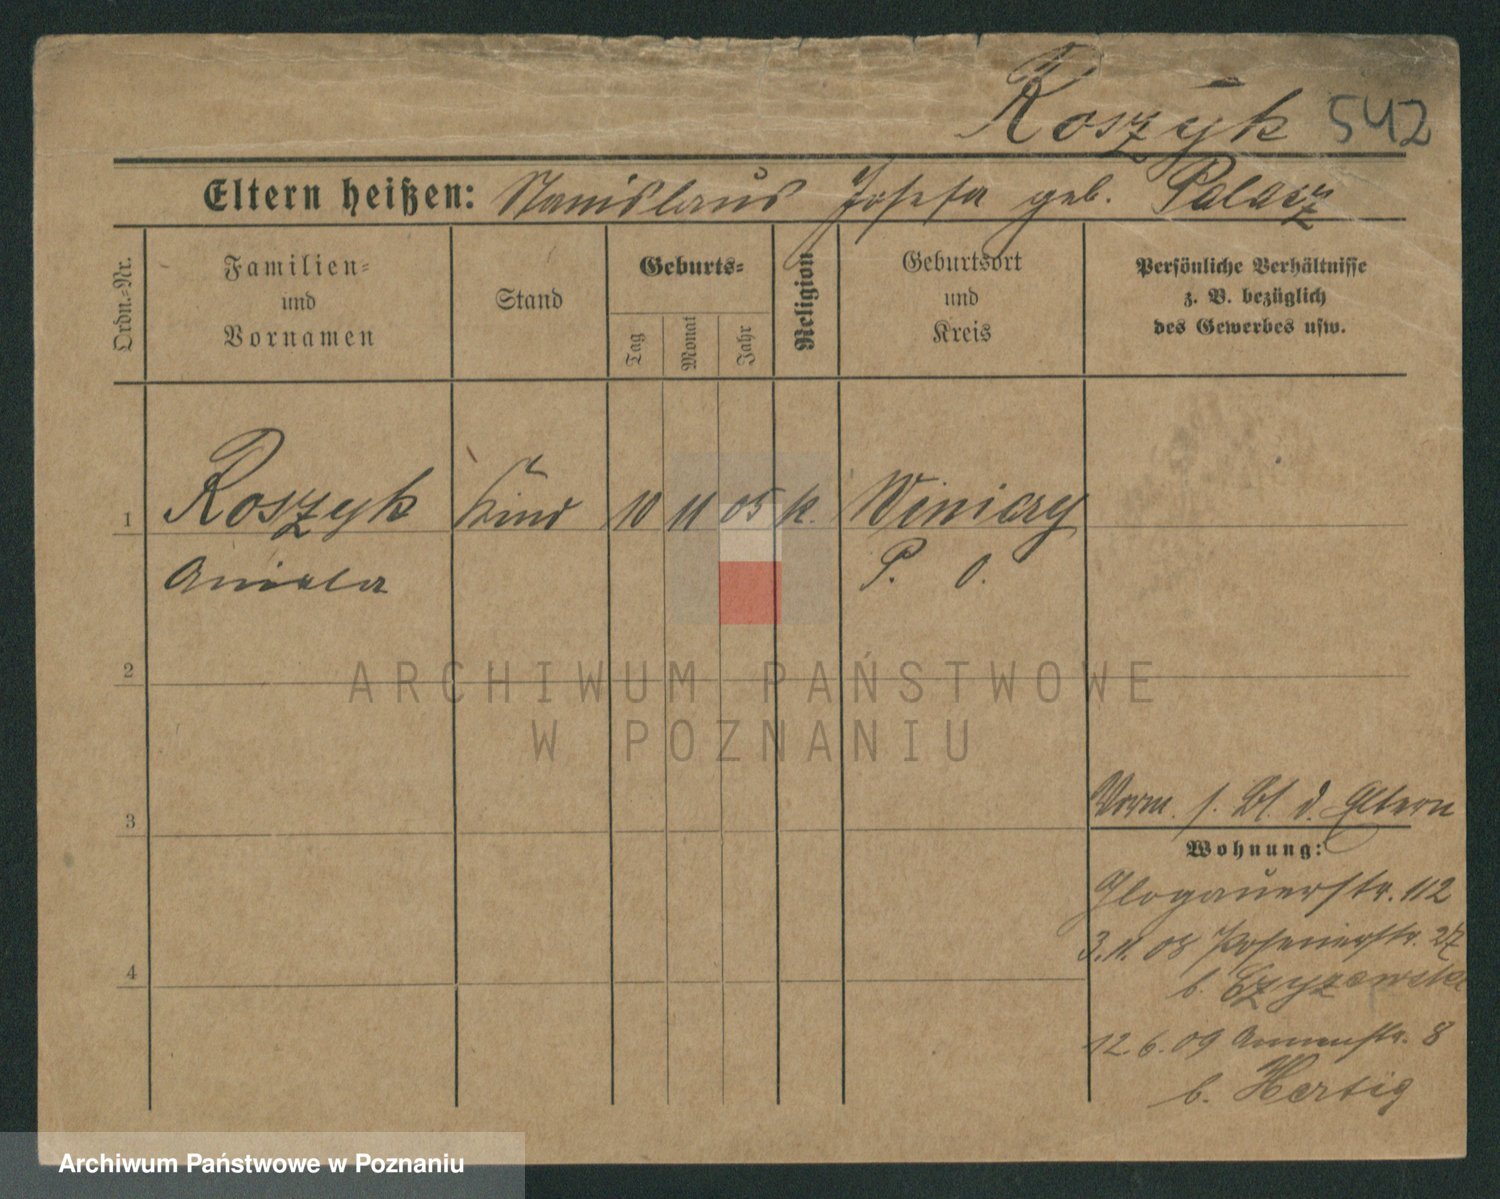 Roszÿk 542
Eltern heißen: Stanislaus Josefa geb. Palacz
Ordn.-Nr.
Familien-
und
Vornamen
Stand
Geburts-
Tag
Monat
Jahr
Religion
Geburtsort
und
Kreis
Persönliche Verhältnisse
z. B. bezüglich
des Gewerbes usw.
1 Roszyk Kind 10 11 05 k. Winiary
Aniela P. O.
2
ARCHIWUM PAŃSTWOWE
W POZNANIU
3
Vorm. s. Bl. d. Eltern
Wohnung:
Glogauerstr. 112
3.11.08 Posenerstr. 27
b. Czyzewska
4
12.6.09 Annenstr. 8
b. Hertig
Archiwum Państwowe w Poznaniu